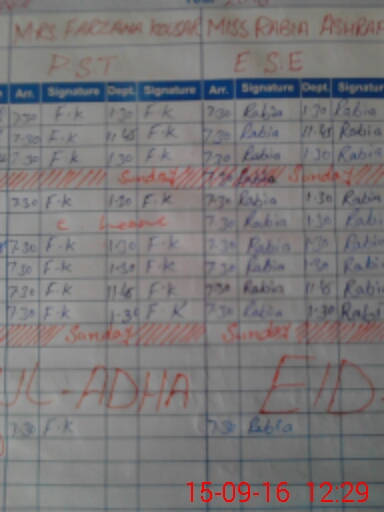 MRS FARZANA KOUSAR MISS RABIA ASHRAF
P.S.T E.S.E
Arr. Signature Dept. Signature Arr. Signature Dept. Signatur
7:30 F.K 1:30 F.K 7:30 Rabia 1:30 Rabia
7:30 F.K 11:45 F.K 7:30 Rabia 11:45 Rabia
7:30 F.K 1:30 F.K 7:30 Rabia 1:30 Rabia
Sunday 7:30 Rabia Sunday
7:30 F.K 1:30 F.K 7:30 Rabia 1:30 Rabia
c leave 7:30 Rabia 1:30 Rabi
7:30 F.K 1:30 F.K 7:30 Rabia 1:30 Rabia
7:30 F.K 1:30 F.K 7:30 Rabia 1:30 Rabia
7:30 F.K 11:45 F.K 7:30 Rabia 11:45 Rabi
7:30 F.K 1:30 F.K 7:30 Rabia 1:30 Rabi
Sunday Sunday
UL-ADHA EID
7:30 F.K 7:30 Rabia
15-09-16 12:29